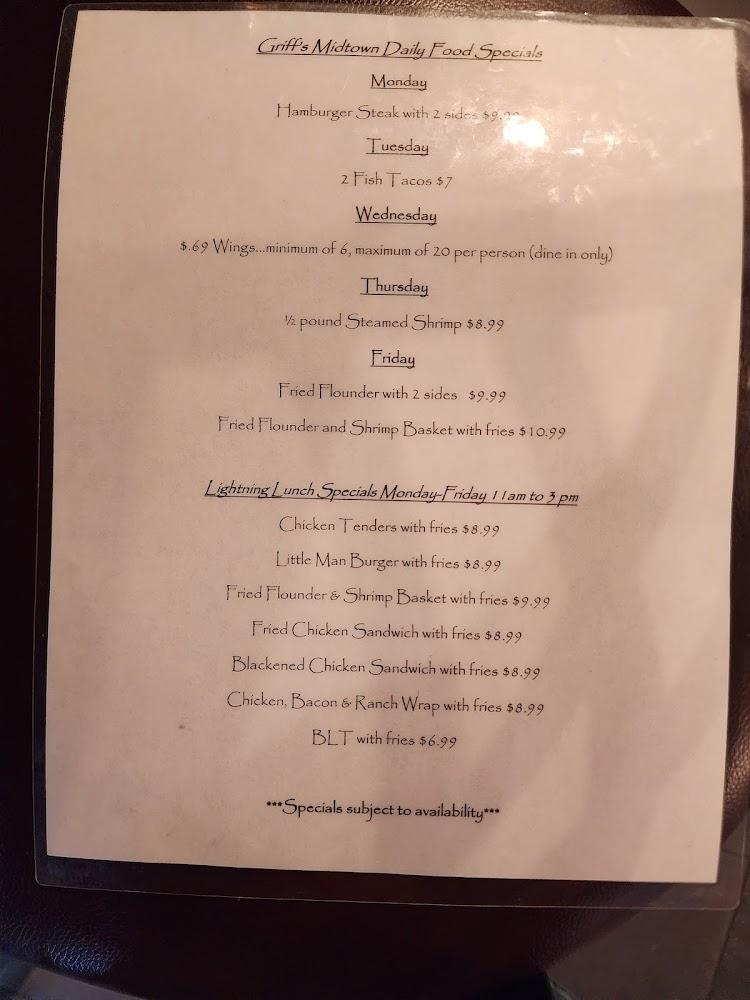 Griff's Midtown Daily Food Specials
Monday
Hamburger Steak with 2 sides $9.99
Tuesday
2 Fish Tacos $7
Wednesday
$.69 Wings...minimum of 6, maximum of 20 per person (dine in only)
Thursday
½ pound Steamed Shrimp $8.99
Friday
Fried Flounder with 2 sides $9.99
Fried Flounder and Shrimp Basket with fries $10.99
Lightning Lunch Specials Monday-Friday 11am to 3 pm
Chicken Tenders with fries $8.99
Little Man Burger with fries $8.99
Fried Flounder & Shrimp Basket with fries $9.99
Fried Chicken Sandwich with fries $8.99
Blackened Chicken Sandwich with fries $8.99
Chicken, Bacon & Ranch Wrap with fries $8.99
BLT with fries $6.99
***Specials subject to availability***